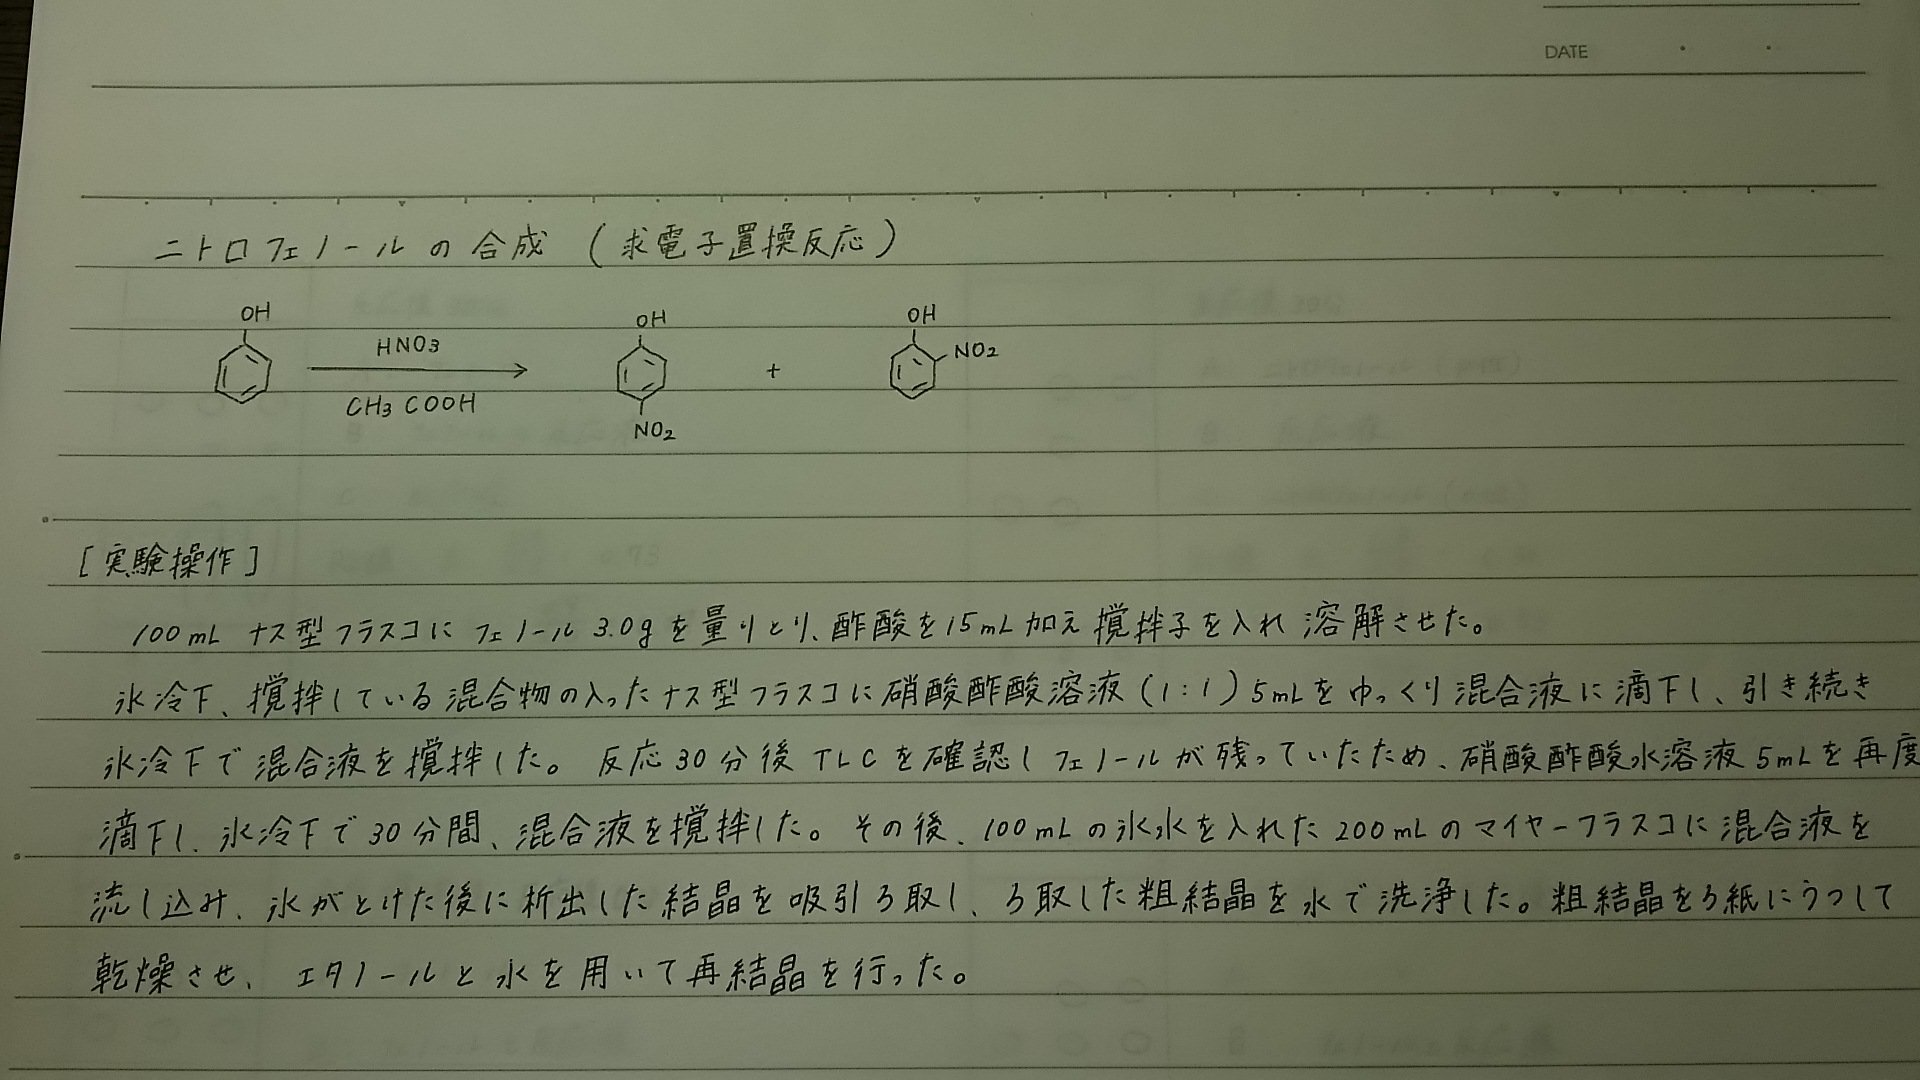 DATE
ニトロフェノールの合成 (求電子置換反応)
OH
HNO3
CH3COOH
OH
NO2
+
OH
NO2
[実験操作]
100mL ナス型フラスコに フェノール 3.0gを量りとり、酢酸を15mL加え 撹拌子を入れ 溶解させた。
氷冷下、撹拌している混合物の入ったナス型フラスコに硝酸酢酸溶液(1:1)5mLをゆっくり混合液に滴下し、引き続き
氷冷下で混合液を撹拌した。反応30分後TLCを確認しフェノールが残っていたため、硝酸酢酸水溶液5mLを再度
滴下し、氷冷下で30分間、混合液を撹拌した。その後、100mLの氷水を入れた200mLのマイヤーフラスコに混合液を
流し込み、氷がとけた後に析出した結晶を吸引ろ取し、ろ取した粗結晶を水で洗浄した。粗結晶をろ紙にうつして
乾燥させ、エタノールと水を用いて再結晶を行った。